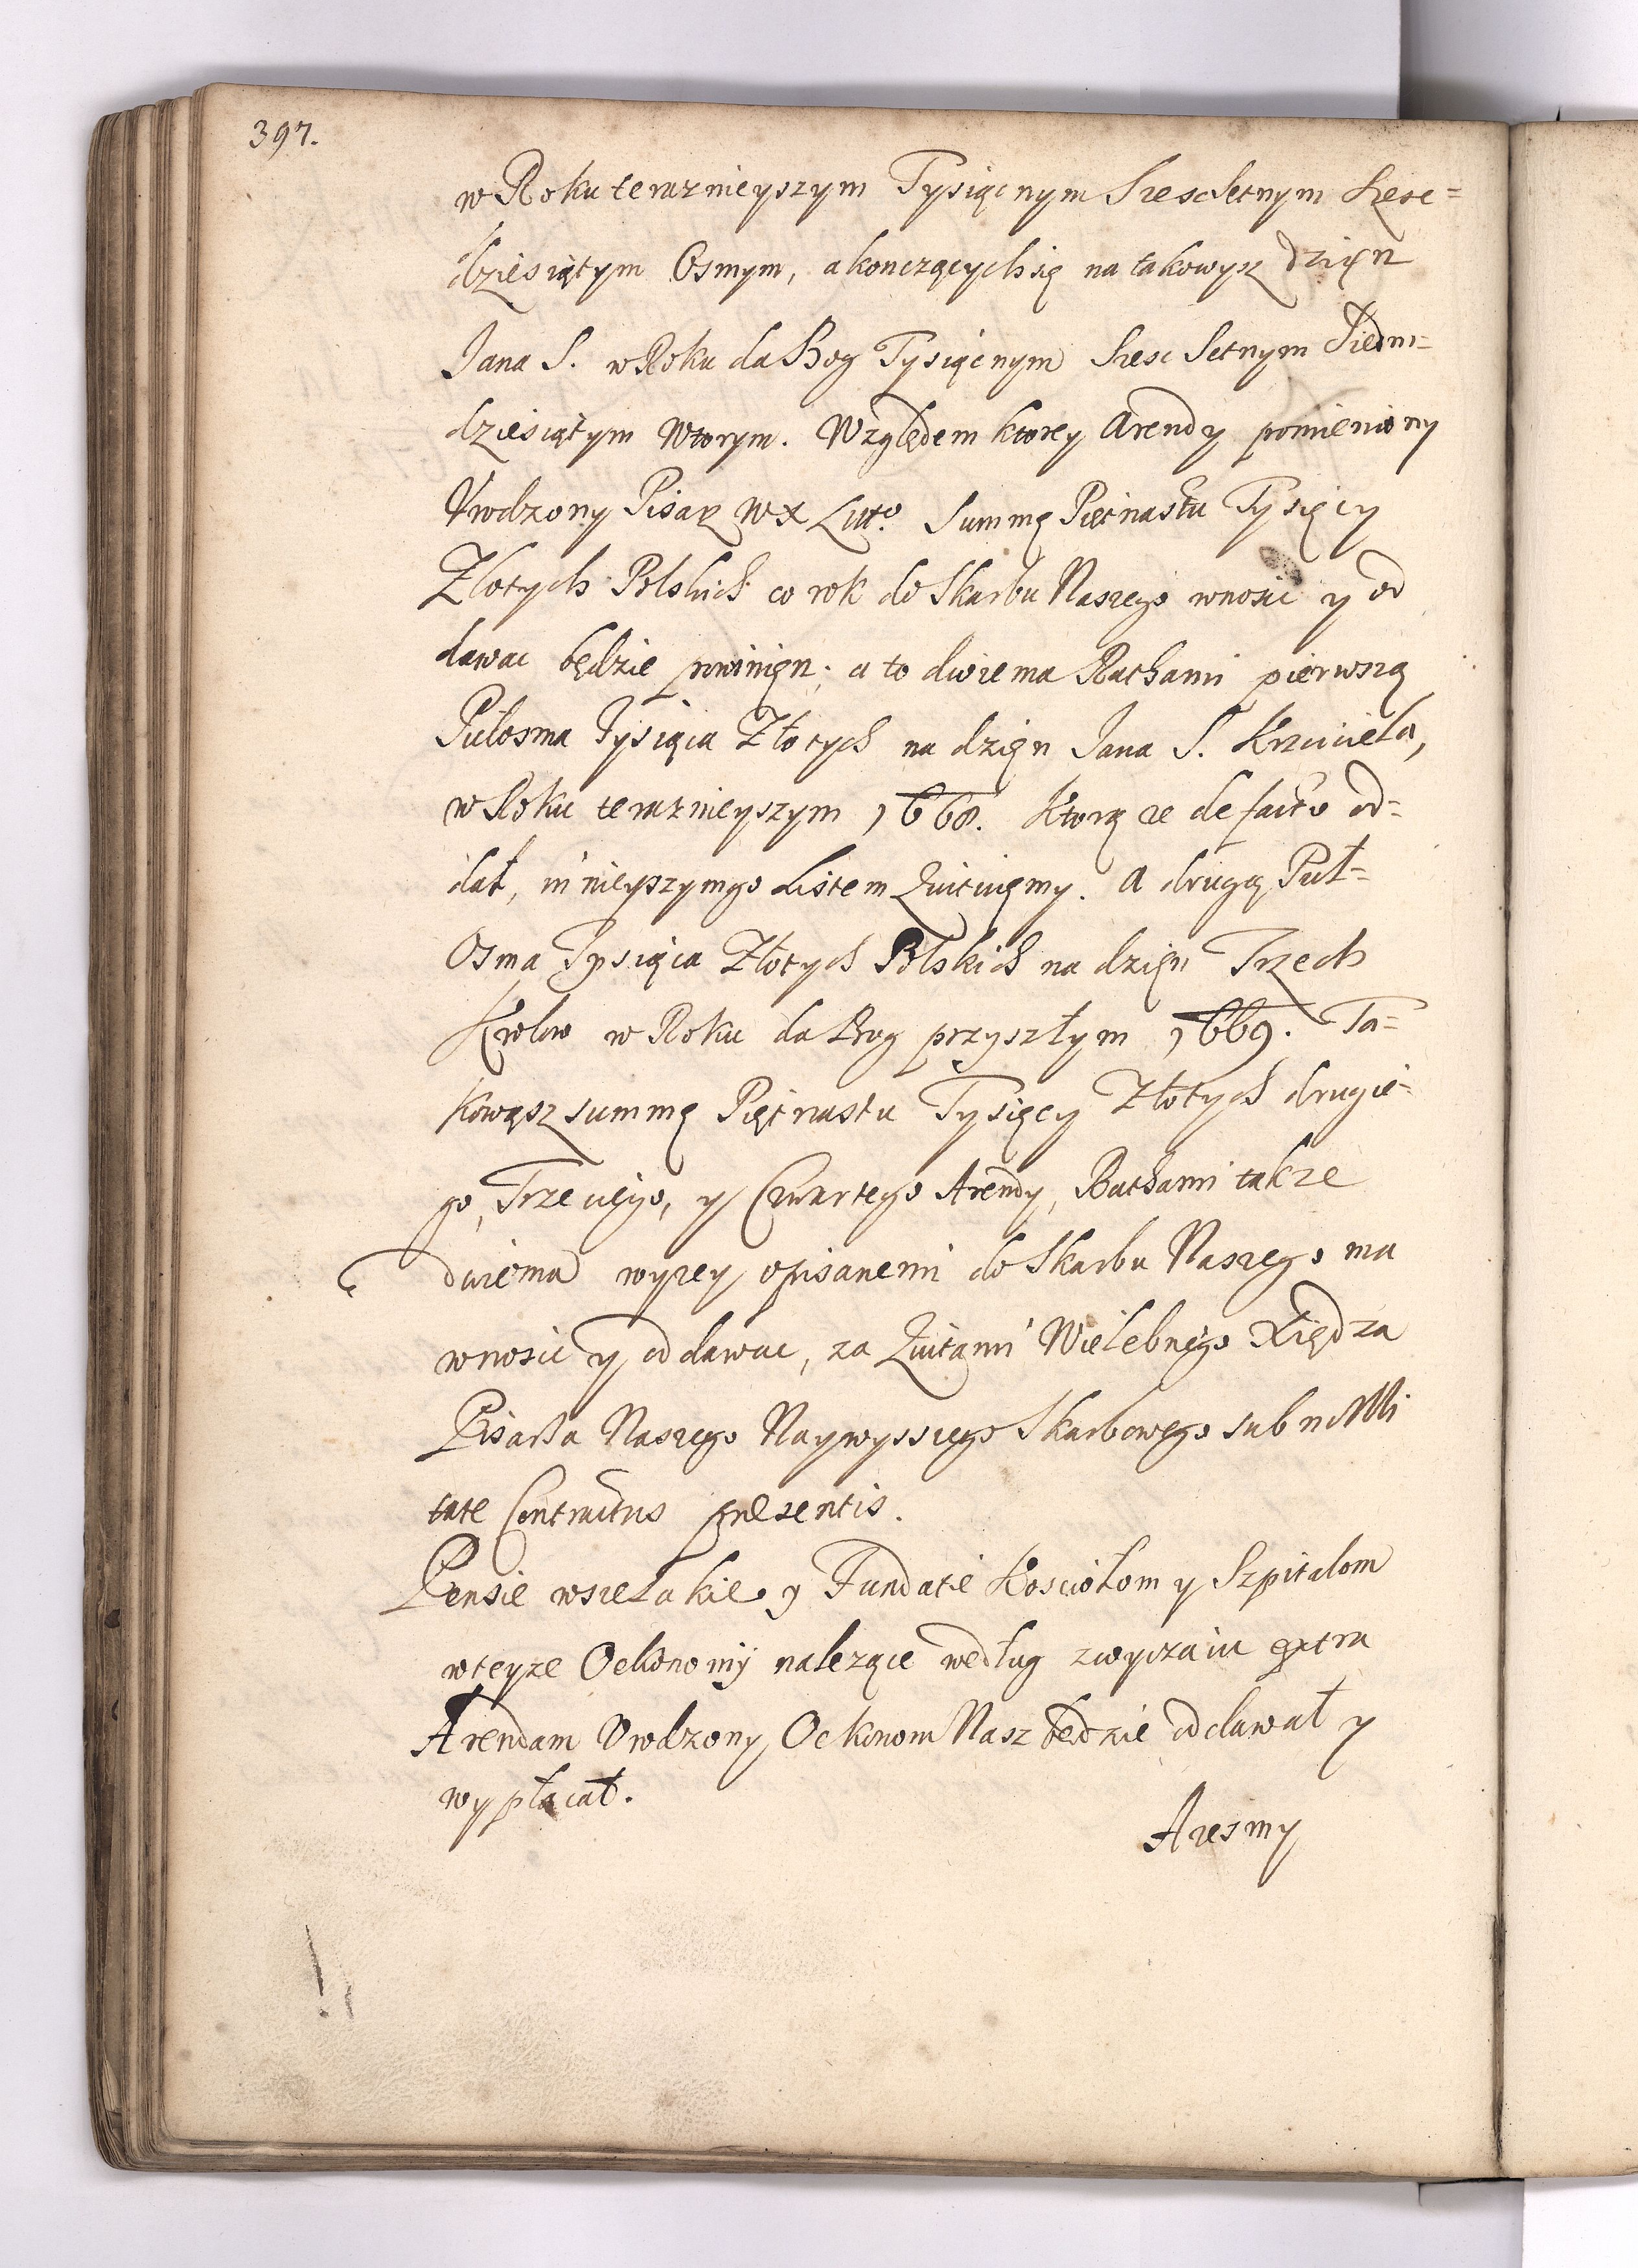 397.
w Roku teraznieyszym Tysiącnym Szescsetnym Szesc=
dziesiątym Osmym, a konczących się na takowysz dzięn
Jana S. w Roku da Bog Tysiącnym Szesc Setnym Siedm=
dziesiątym Wtorym. Względem ktorey Arendy pomieniony
Vrodzony Pisarz WX Litto. Summę Piętnastu Tysięcy
Złotych Polskich co rok do Skarbu Naszego wnosic y od
dawac będzie powinięn; a to dwiema Rathami pierwszą
Pułosma Tysiąca Złotych na dzięn Jana S. Krzciciela,
w Roku terazniejszym 1668. Ktorą ze defacto od=
dał, ninieyszym go Listem Quituięmy. A drugą Puł=
Osma Tysiąca Złotych Polskich na dzięn Trzech
Krolow w Roku da Bog przyszłym 1669. Ta=
kowąsz summę Piętnastu Tysięcy Złotych drugie=
go, Trzeciego, y Czwartego Arendy, Rathami takze
dwiema wyzey opisanemi do Skarbu Naszego ma
wnosic y oddawac, za Quitami Wielebnego Xiędza
Pisarza Naszego Naywyszszego Skarbowego sub nulli
tate Contractus præsentis.
Pensie wszelakie y Fundatie Kosciołom y Szpitalom
w teyze Oekonomij nalezące według zwyczaiu extra
Arendam Vrodzony Oekonom Nasz będzie oddawał y
wypłacał.
A zesmy